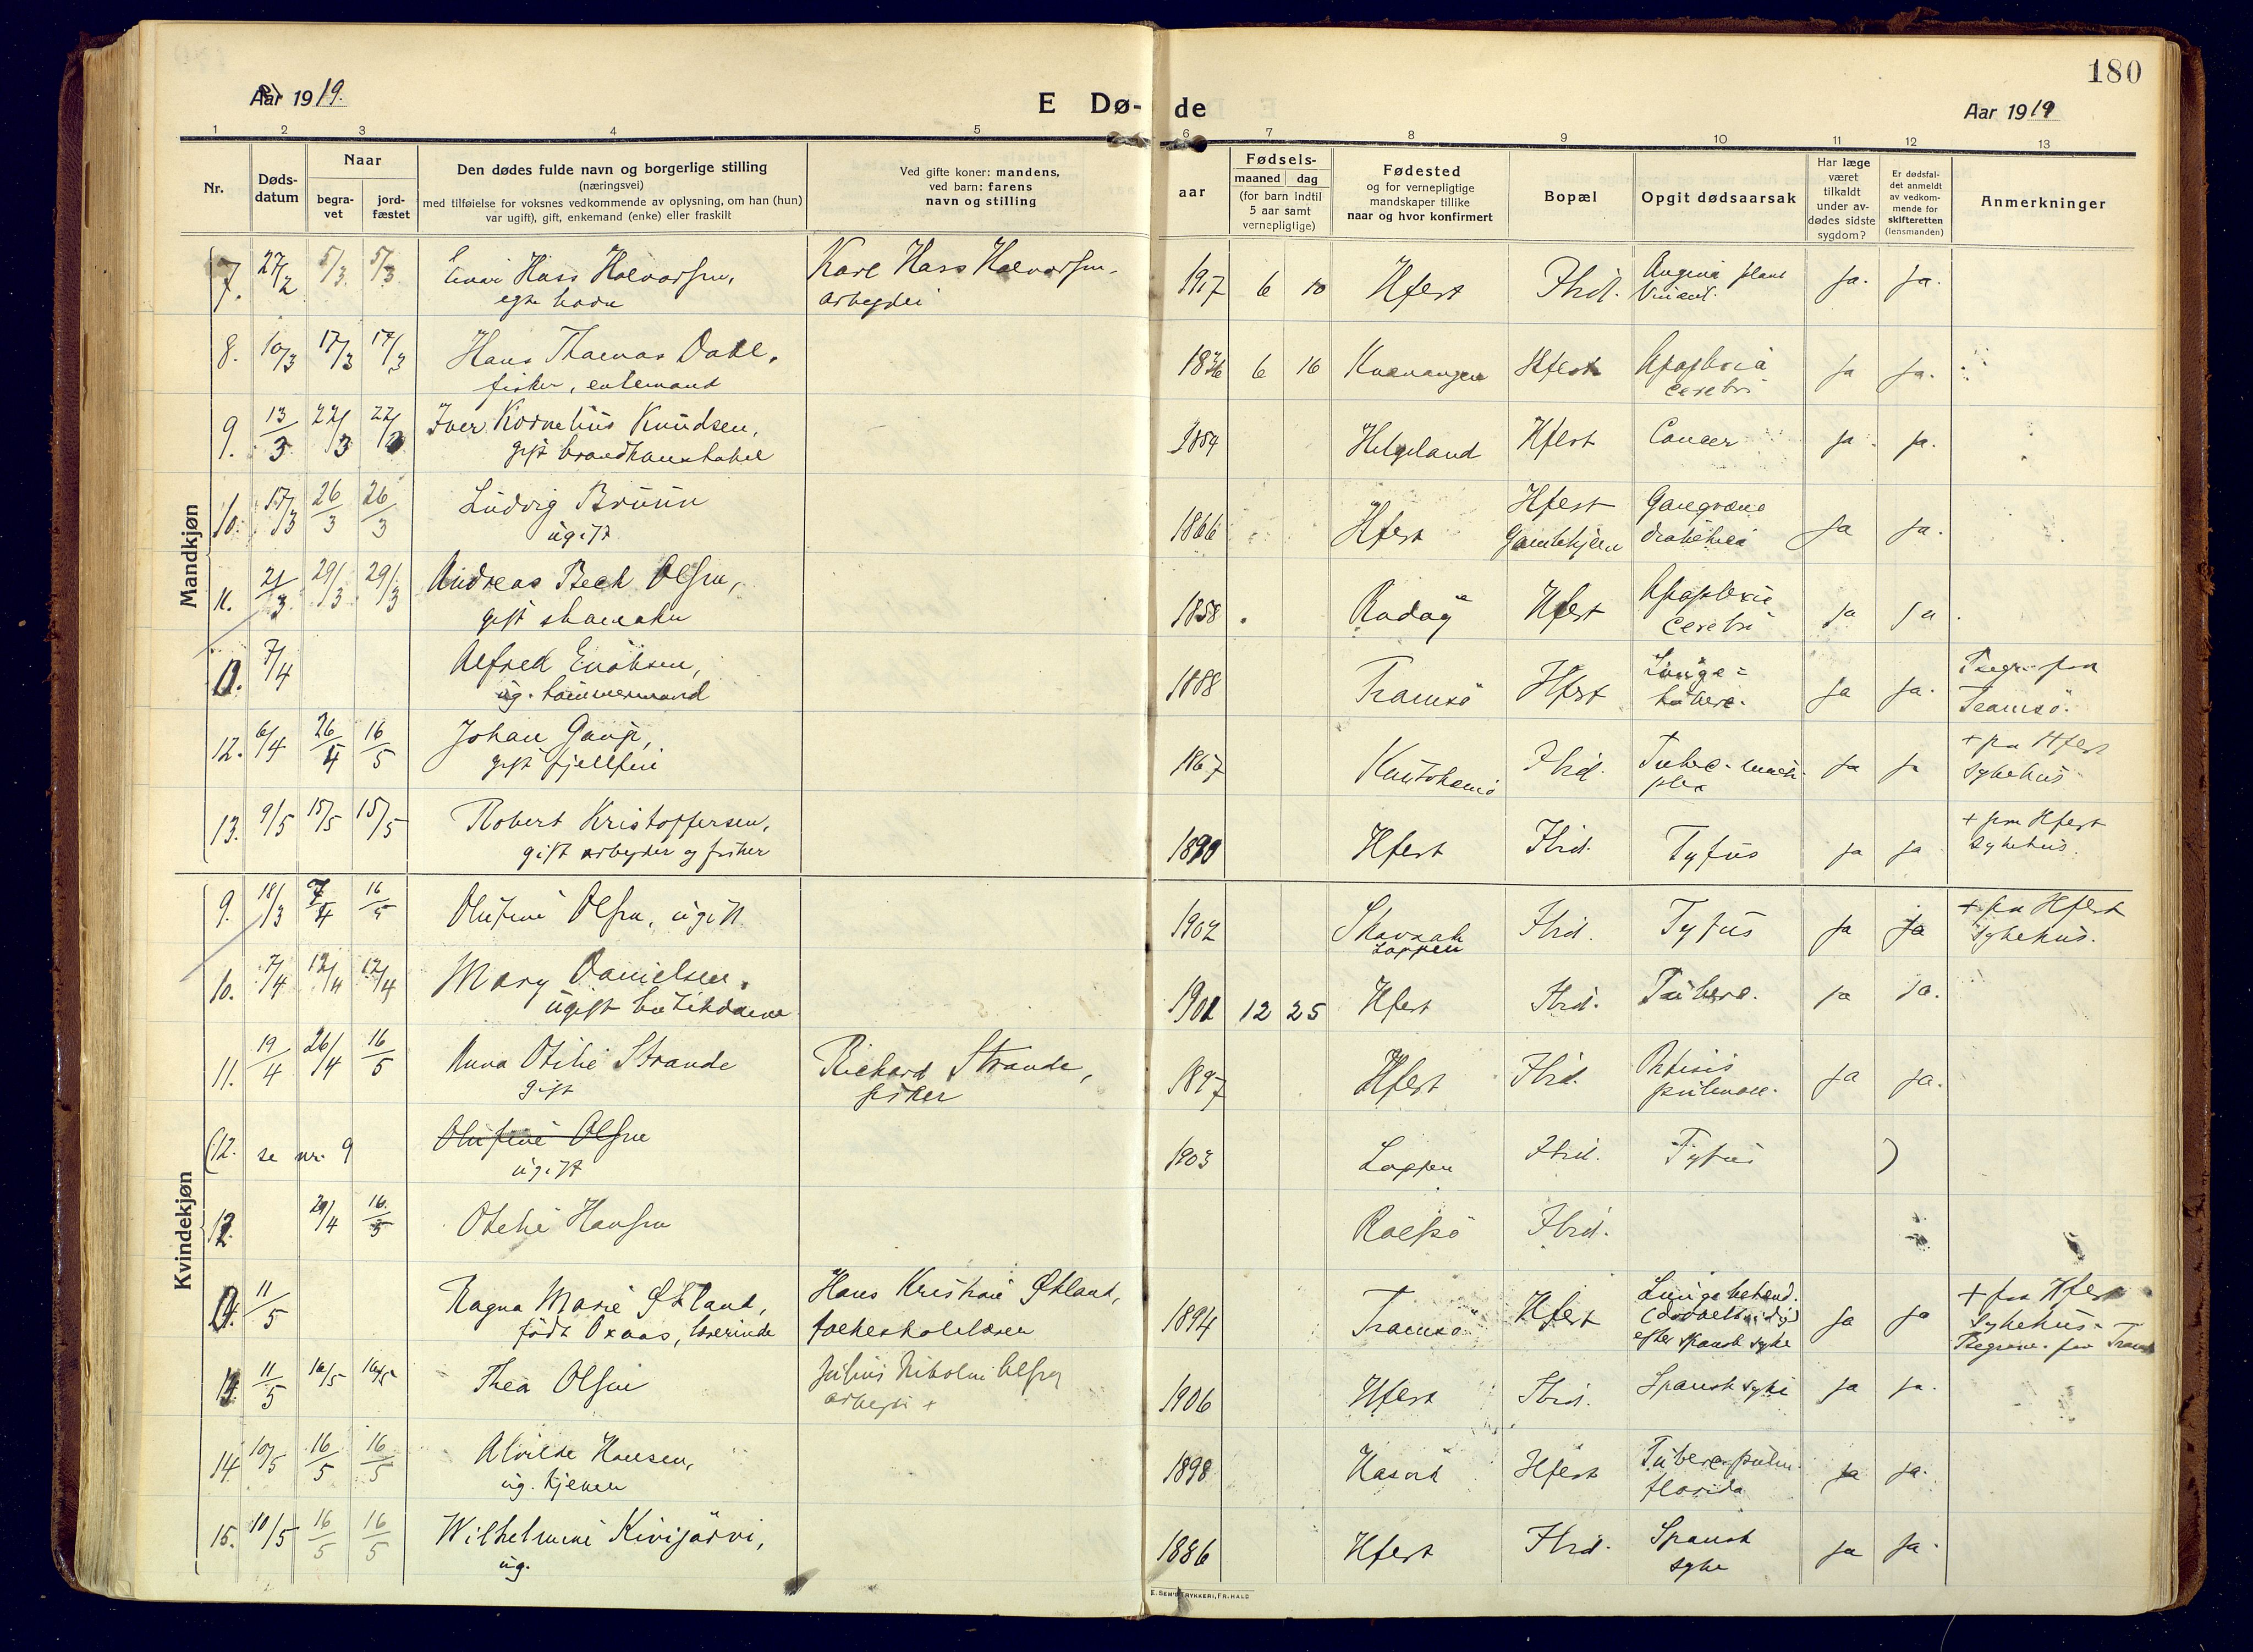 180
Aar 1919.
E Dø-
de
Aar 1919
1 2 3 4 5 6 7 8 9 10 11 12 13
Nr.
Døds-
datum
Naar
begra-
vet
jord-
fæstet
Den dødes fulde navn og borgerlige stilling
(næringsvei)
med tilføielse for voksnes vedkommende av oplysning, om han (hun)
var ugift), gift, enkemand (enke) eller fraskilt
Ved gifte koner: mandens,
ved barn: farens
navn og stilling
aar
Fødsels-
maaned dag
(for barn indtil
5 aar samt
vernepligtige)
Fødested
og for vernepligtige
mandskaper tillike
naar og hvor konfirmert
Bopæl
Opgit dødsaarsak
Har læge
været
tilkaldt
under av-
dødes sidste
sygdom?
Er dødsfal-
det anmeldt
av vedkom-
mende for
skifteretten
(lensmanden)
Anmerkninger
Mandkjøn
7. 27/2 5/3. 5/3 Einar Hass Halvorsen, Karl Hass Halvorsen. 1917 6 10 Hfest Ibid. Angina ja. ja.
egte barn arbeyder
8. 10/3 17/3 17/3 Hans Thomas Dahl, 1836 6 16 Kvænangen Hfest Apoplexia ja ja.
fisker, enkemand cerebri
9. 13/3 22/3 22/3 Iver Kornelius Knudsen, 1854 Helgeland Hfest Cancer ja. ja.
gift brandkonstabel
10. 17/3 26/3 26/3 Ludvig Bruun 1866 Hfest Hfest Gangræna ja ja.
ugift Gamlehjem diabetica
11. 21/3 29/3 29/3 Andreas Bech Olsen, 1858 Rødøy Hfest Apoplexia ja ja
gift skomaker cerebri
11. 7/4 Alfred Enoksen, 1888 Tromsø Hfest Lunge- ja ja. Begr. fra
ug. tømmermand tuberc. Tromsø.
12. 6/4 26/4 16/5 Johan Gaup, 1867 Kautokeino Ibid. Tuberc. ja ja + paa Hfest
gift fjellfin sykehus
13. 9/5 15/5 15/5 Robert Kristoffersen, 1890 Hfest Ibid. Tyfus ja ja + paa Hfest
gift arbeyder og fisker sykehus.
Kvindekjøn
9. 18/3 7/4 16/5 Olufine Olsen, ugift 1902 Skavnak Ibid. Tyfus ja ja + paa Hfest
Loppen sykehus.
10. 7/4 12/4 12/4 Mary Danielsen, 1901 12 25 Hfest Ibid. Tuberc. ja ja.
ugift butikdame
11. 19/4 26/4 16/5 Anna Otilie Strande Richard Strande, 1897 Hfest Ibid. Phtisis ja ja.
gift fisker pulmon.
(12. se nr. 9 Olufine Olsen 1903 Loppen Ibid. Tyfus )
ugift
12. 29/4 16/5 Otelie Hansen Rolfsø Ibid.
11/5 Ragna Marie Økland, Hans Kristian Økland, 1894 Tromsø Hfest Lungebetænd. ja ja + paa Hfest
født Oxaas, lærerinde folkeskolelærer (dobbeltsidig) sykehus.
efter spansk syke Begrave. fra Tromsø
13. 11/5 16/5 16/5 Thea Olsen Julius Nikolai Olsen 1906 Hfest Ibid. Spansk syke ja ja.
arbeyder +
14 10/5 16/5 16/5 Alvilde Hansen, 1898 Hasvik Hfest Tuberc. pulm. ja ja.
ug. tjener florida
15. 10/5 16/5 16/5 Wilhelmine Kivijärvi, 1886 Hfest Ibid. Spansk ja ja.
ug. syke
E. SEM'S TRYKKERI, FR. HALD